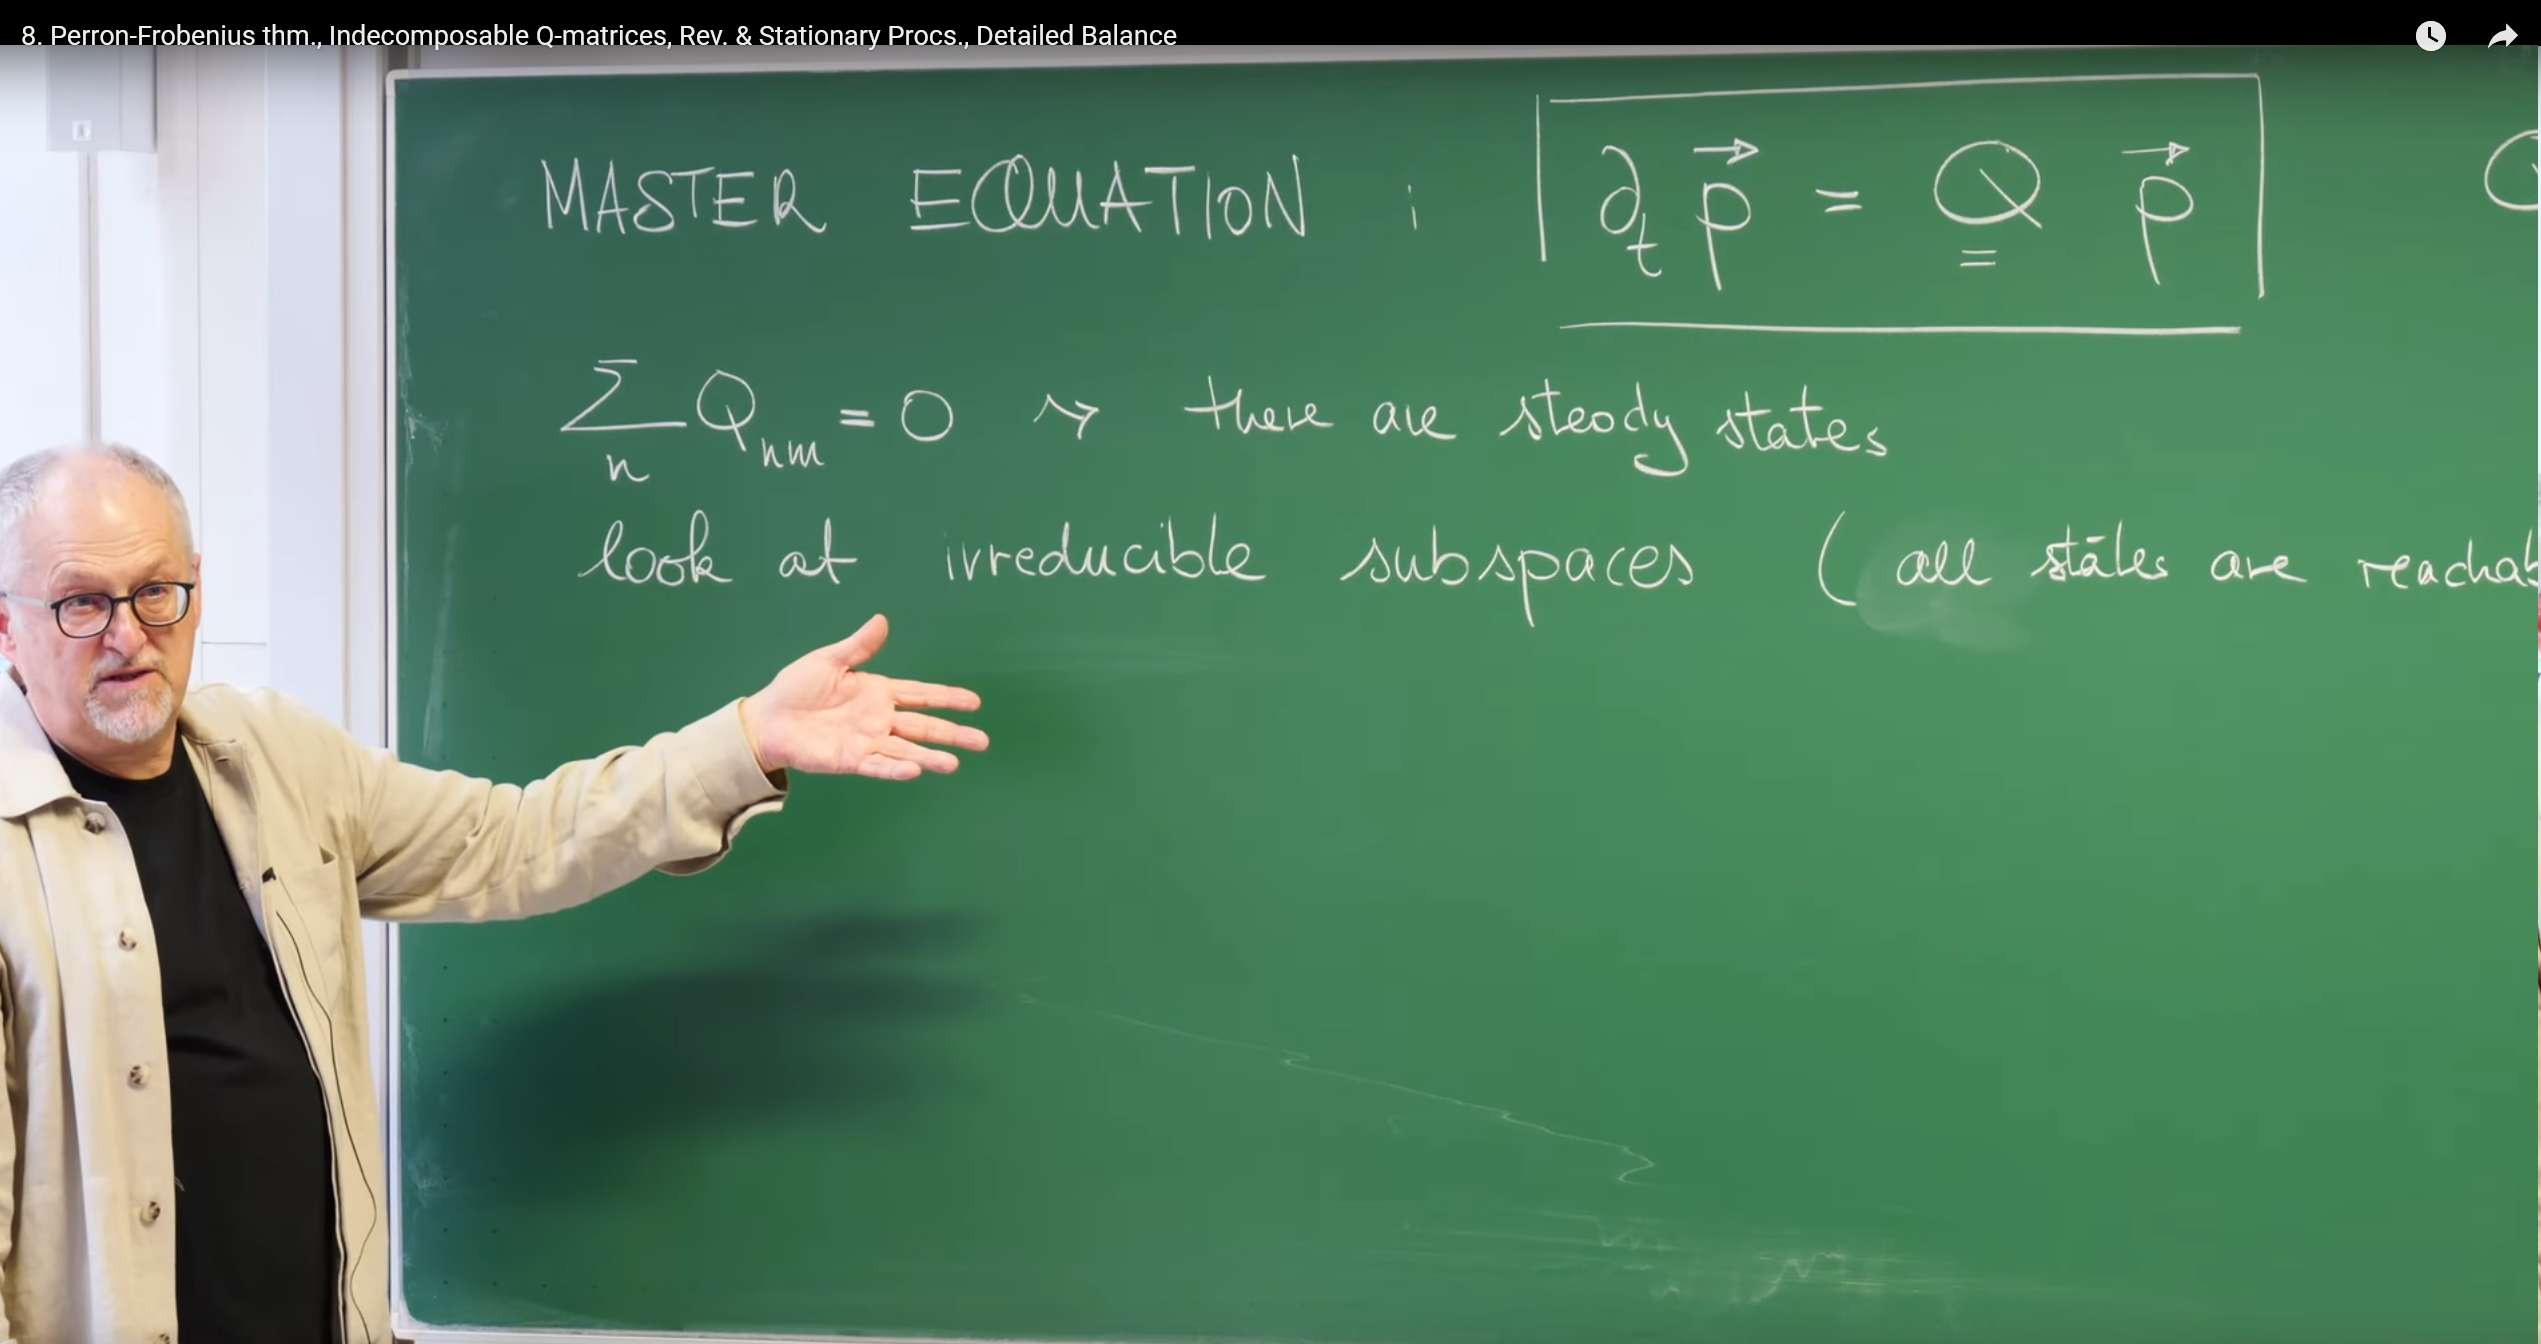 8. Perron-Frobenius thm., Indecomposable Q-matrices, Rev. & Stationary Procs., Detailed Balance
MASTER EQUATION : ∂ₜ p⃗ = Q p⃗
∑ₙ Qₙₘ = 0 ⇝ there are steady states
look at irreducible subspaces ( all states are